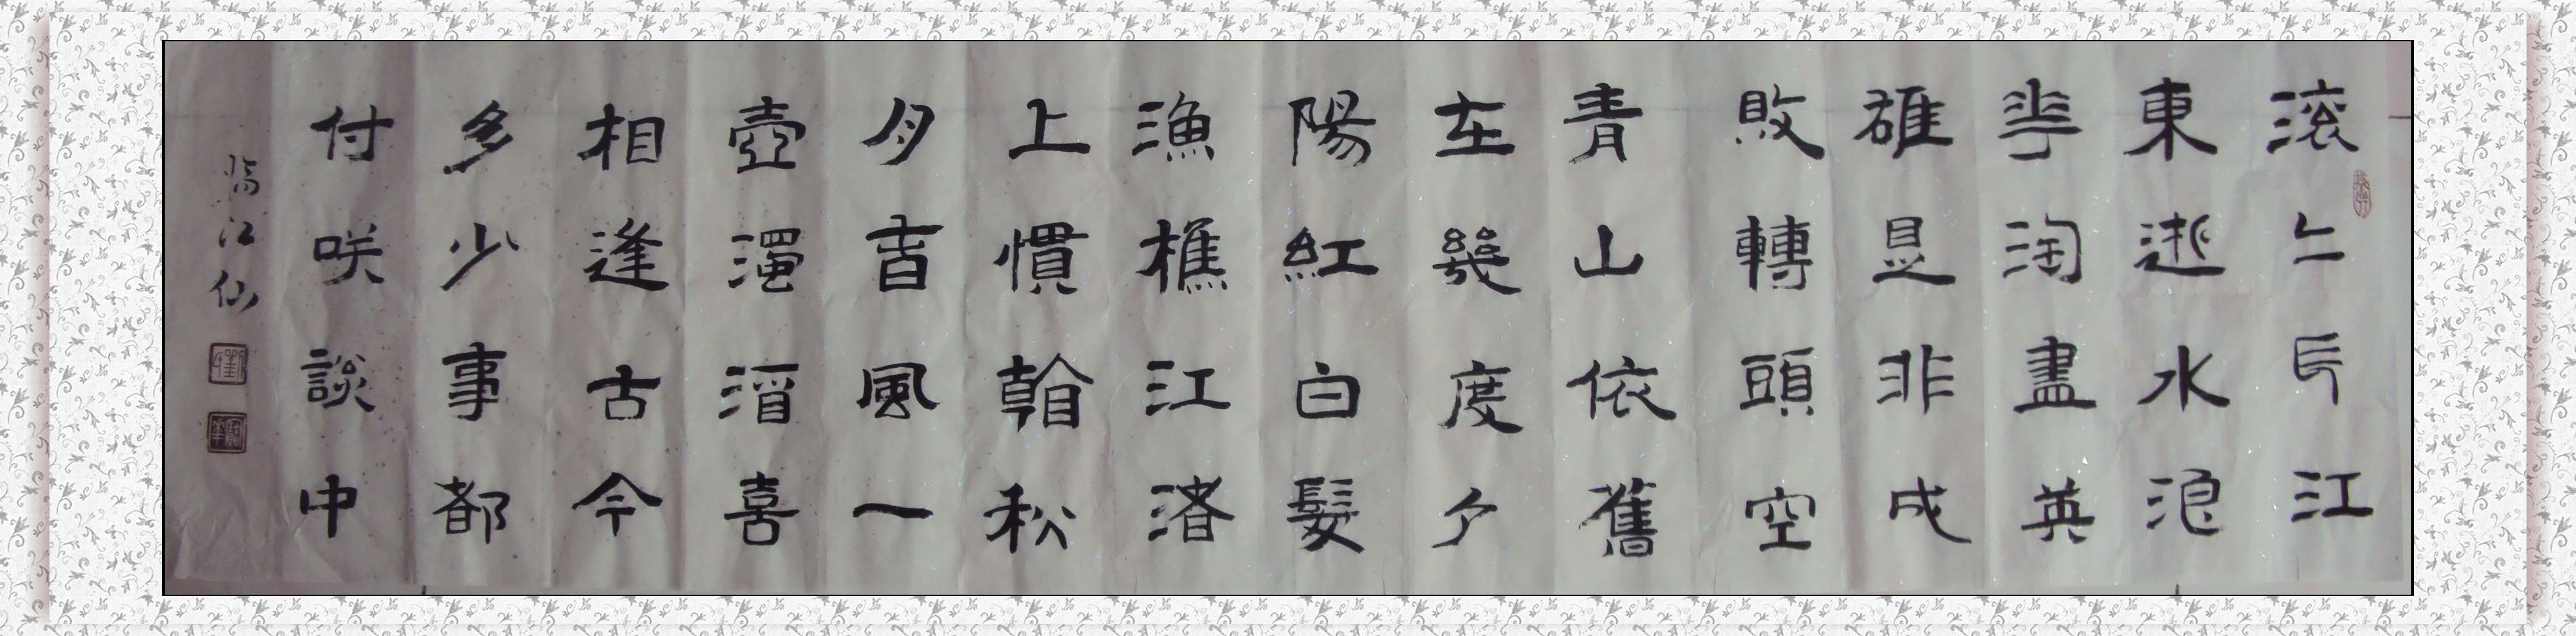 滚〻長江
東逝水浪
華淘盡英
雄是非成
敗轉頭空
青山依舊
在幾度夕
陽紅白髮
漁樵江渚
上慣看秋
月春風一
壺濁酒喜
相逢古今
多少事都
付咲談中
臨江仙